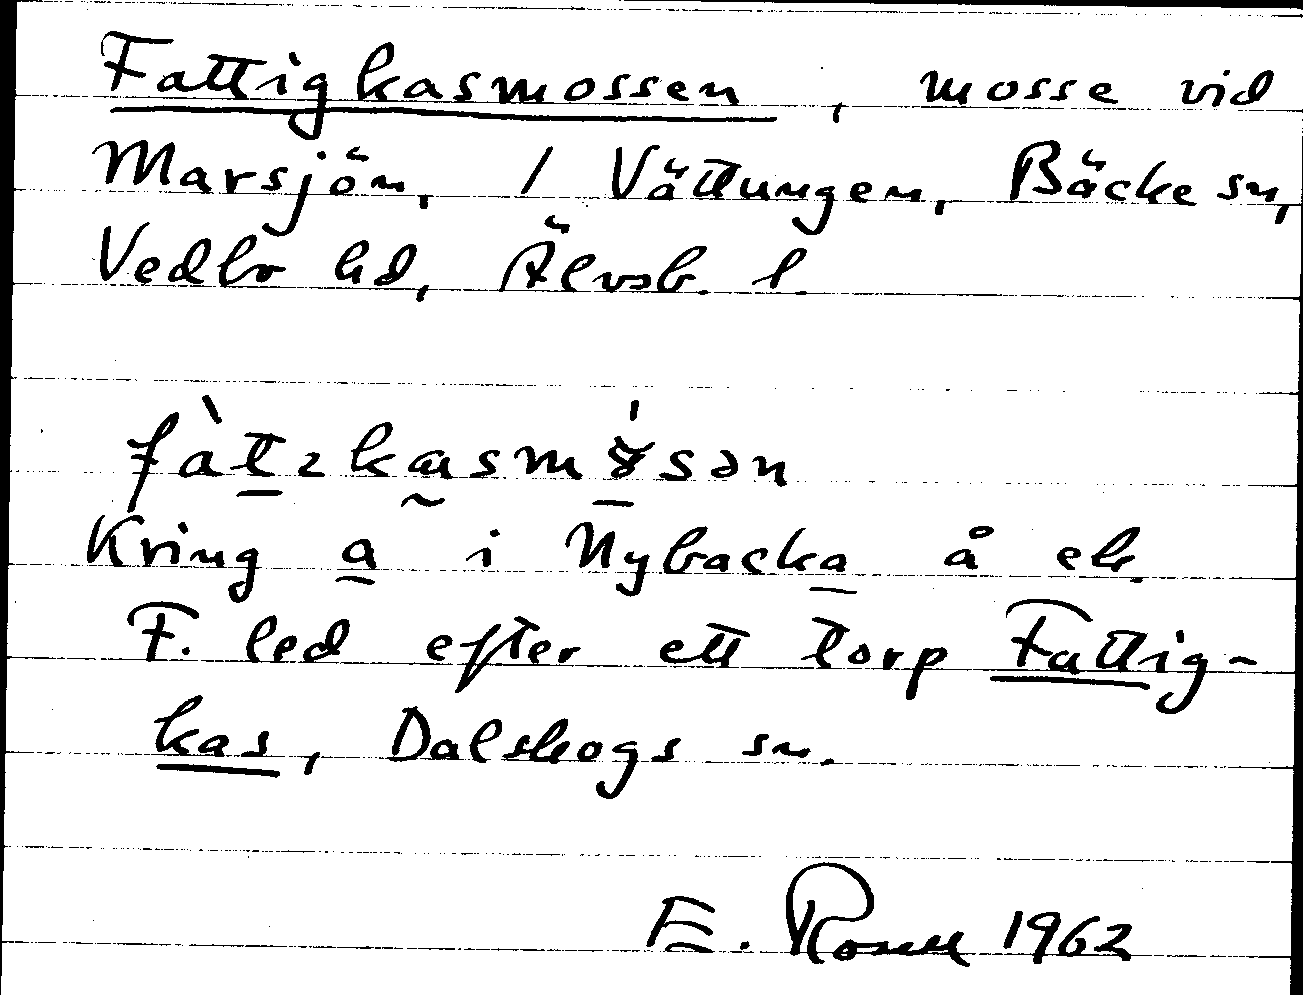 Fattigkasmossen, mosse vid
Marsjön, / Vättungen, Bäcke sn,
Vedbo hd, Älvsb. l.
Kring a i Nybacka å ek.
F. led efter ett torp Fattig-
kas, Dalskogs sn.
E. Rosell 1962